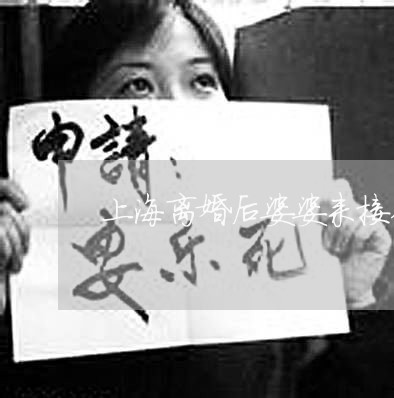 申請：
上海离婚后婆婆来接
安乐死